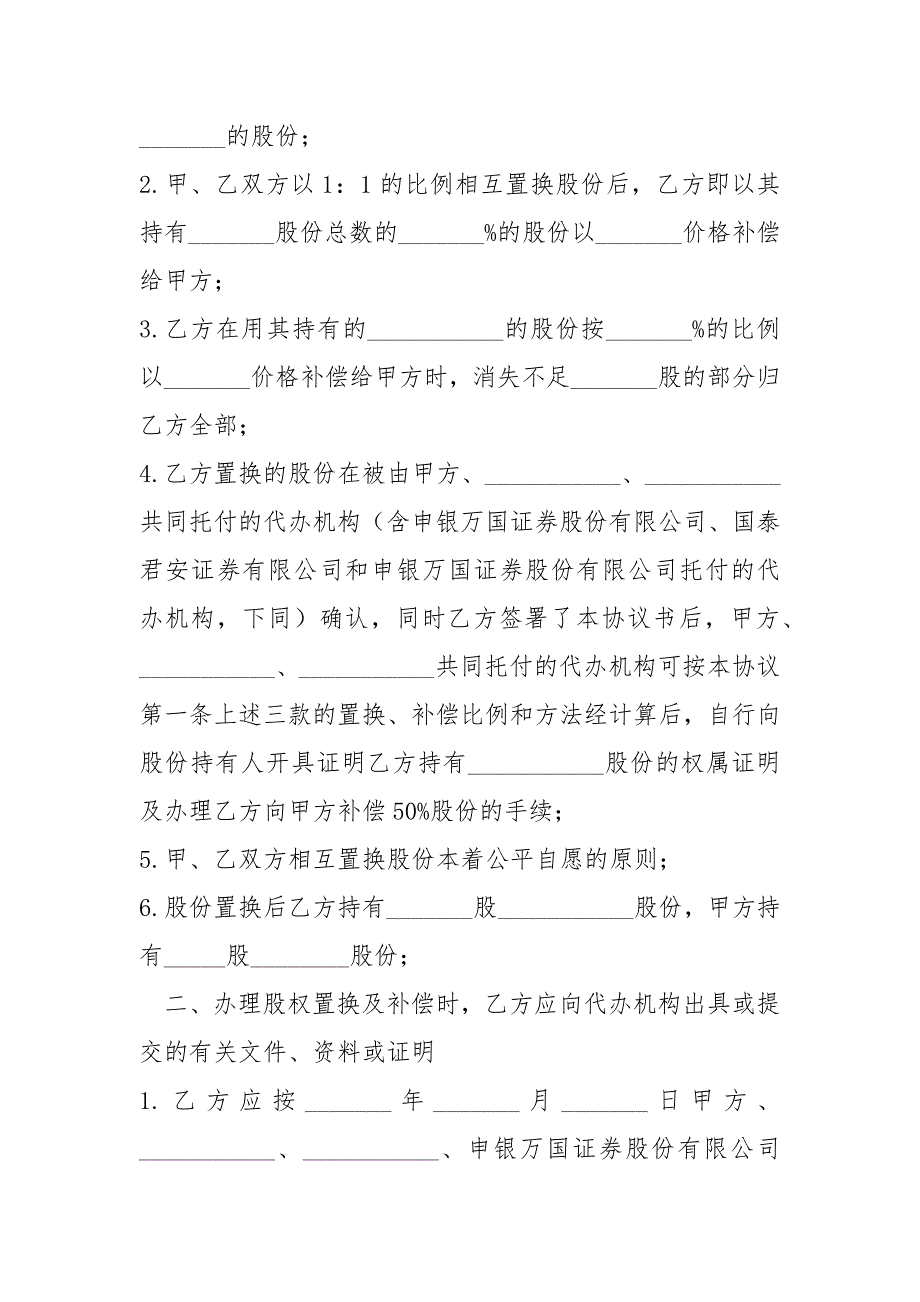 _______的股份；
2.甲、乙双方以1：1的比例相互置换股份后，乙方即以其
持有_______股份总数的_______%的股份以_______价格补偿
给甲方；
3.乙方在用其持有的___________的股份按_______%的比例
以_______价格补偿给甲方时，消失不足_______股的部分归
乙方全部；
4.乙方置换的股份在被由甲方、___________、___________
共同托付的代办机构（含申银万国证券股份有限公司、国泰
君安证券有限公司和申银万国证券股份有限公司托付的代
办机构，下同）确认，同时乙方签署了本协议书后，甲方、
___________、___________共同托付的代办机构可按本协议
第一条上述三款的置换、补偿比例和方法经计算后，自行向
股份持有人开具证明乙方持有___________股份的权属证明
及办理乙方向甲方补偿50%股份的手续；
5.甲、乙双方相互置换股份本着公平自愿的原则；
6.股份置换后乙方持有_______股___________股份，甲方持
有_____股________股份；
二、办理股权置换及补偿时，乙方应向代办机构出具或提
交的有关文件、资料或证明
1.乙方应按_______年_______月_______日甲方、
___________、___________、申银万国证券股份有限公司